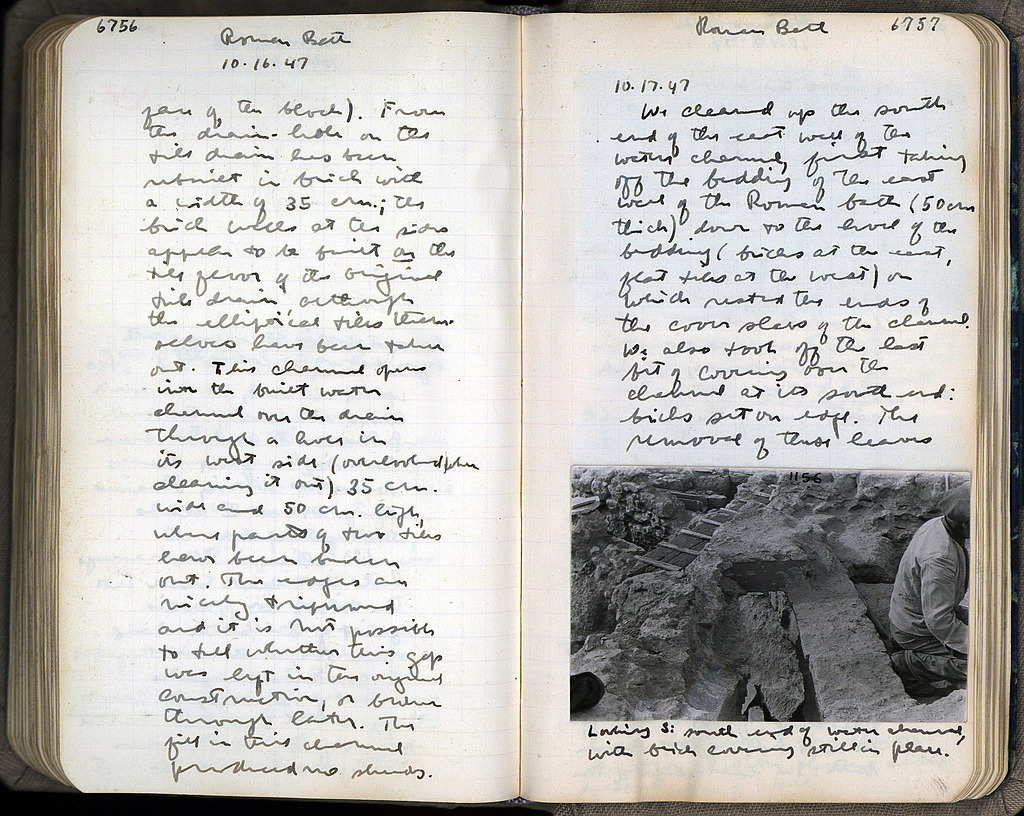 6756
Roman Bath
10.16.47
face of the block). From
the drain-hole on the
tile drain has been
rebuilt in brick with
a width of 35 cm.; the
brick walls at the sides
appear to be built on the
tile floor of the original
tile drain although
the elliptical tiles them-
selves have been taken
out. This channel opens
into the built water
channel over the drain
through a hole in
its west side (overlooked when
cleaning it out) 35 cm.
wide and 50 cm. high,
where parts of two tiles
have been broken
out. The edges are
nicely trimmed
and it is not possible
to tell whether this gap
was left in the original
construction, or broken
through later. The
fill in this channel
produced no sherds.
Roman Bath
6757
10.17.47
We cleaned up the south
end of the east wall of the
water channel, first taking
off the bedding of the east
wall of the Roman bath (50 cm
thick) down to the level of the
bedding (bricks at the east,
flat tiles at the west) on
which rested the ends of
the cover slabs of the channel.
We also took off the last
bit of covering over the
channel at its south end:
bricks set on edge. The
removal of these leaves
1156
Looking S: south end of water channel,
with brick covering still in place.